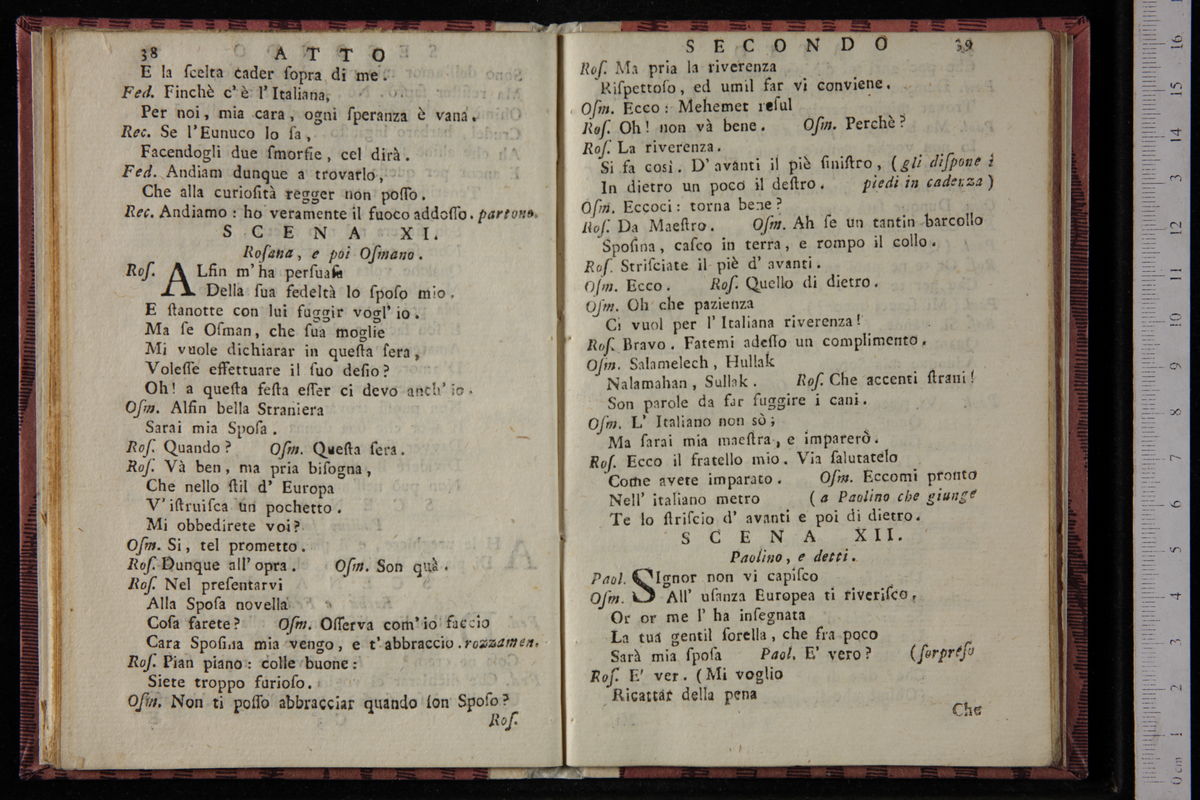 38 ATTO
E la ſcelta cader ſopra di me.
Fed. Finchè c'è l'Italiana,
Per noi, mia cara, ogni ſperanza è vana.
Rec. Se l'Eunuco lo ſa,
Facendogli due ſmorfie, cel dirà.
Fed. Andiam dunque a trovarlo,
Che alla curioſità regger non poſſo.
Rec. Andiamo: ho veramente il fuoco addoſſo. partono.
SCENA XI.
Roſana, e poi Oſmano.
Roſ. ALfin m'ha perſuaſa
Della ſua fedeltà lo ſpoſo mio.
E ſtanotte con lui fuggir vogl'io.
Ma ſe Oſman, che ſua moglie
Mi vuole dichiarar in queſta ſera,
Voleſſe effettuare il ſuo deſio?
Oh! a queſta feſta eſſer ci devo anch'io.
Oſm. Alfin bella Straniera
Sarai mia Spoſa.
Roſ. Quando? Oſm. Queſta ſera.
Roſ. Và ben, ma pria biſogna,
Che nello ſtil d'Europa
V'iſtruiſca un pochetto.
Mi obbedirete voi?
Oſm. Si, tel prometto.
Roſ. Dunque all'opra. Oſm. Son quà.
Roſ. Nel preſentarvi
Alla Spoſa novella
Coſa farete? Oſm. Oſſerva com'io faccio
Cara Spoſina mia vengo, e t'abbraccio. rozzamen.
Roſ. Pian piano: colle buone:
Siete troppo furioſo.
Oſm. Non ti poſſo abbracciar quando ſon Spoſo?
Roſ.
SECONDO 39
Roſ. Ma pria la riverenza
Riſpettoſo, ed umil far vi conviene.
Oſm. Ecco: Mehemet reſul
Roſ. Oh! non và bene. Oſm. Perchè?
Roſ. La riverenza.
Si fa così. D'avanti il piè ſiniſtro, (gli diſpone i
In dietro un poco il deſtro. piedi in cadenza)
Oſm. Eccoci: torna bene?
Roſ. Da Maeſtro. Oſm. Ah ſe un tantin barcollo
Spoſina, caſco in terra, e rompo il collo.
Roſ. Striſciate il piè d'avanti.
Oſm. Ecco. Roſ. Quello di dietro.
Oſm. Oh che pazienza
Ci vuol per l'Italiana riverenza!
Roſ. Bravo. Fatemi adeſſo un complimento.
Oſm. Salamelech, Hullak
Nalamahan, Sullak. Roſ. Che accenti ſtrani!
Son parole da far fuggire i cani.
Oſm. L'Italiano non sò;
Ma ſarai mia maeſtra, e imparerò.
Roſ. Ecco il fratello mio. Via ſalutatelo
Come avete imparato. Oſm. Eccomi pronto
Nell'italiano metro (a Paolino che giunge
Te lo ſtriſcio d'avanti e poi di dietro.
SCENA XII.
Paolino, e detti.
Paol. SIgnor non vi capiſco
Oſm. All'uſanza Europea ti riveriſco,
Or or me l'ha inſegnata
La tua gentil ſorella, che fra poco
Sarà mia ſpoſa Paol. E' vero? (ſorpreſo
Roſ. E' ver. (Mi voglio
Ricattar della pena
Che